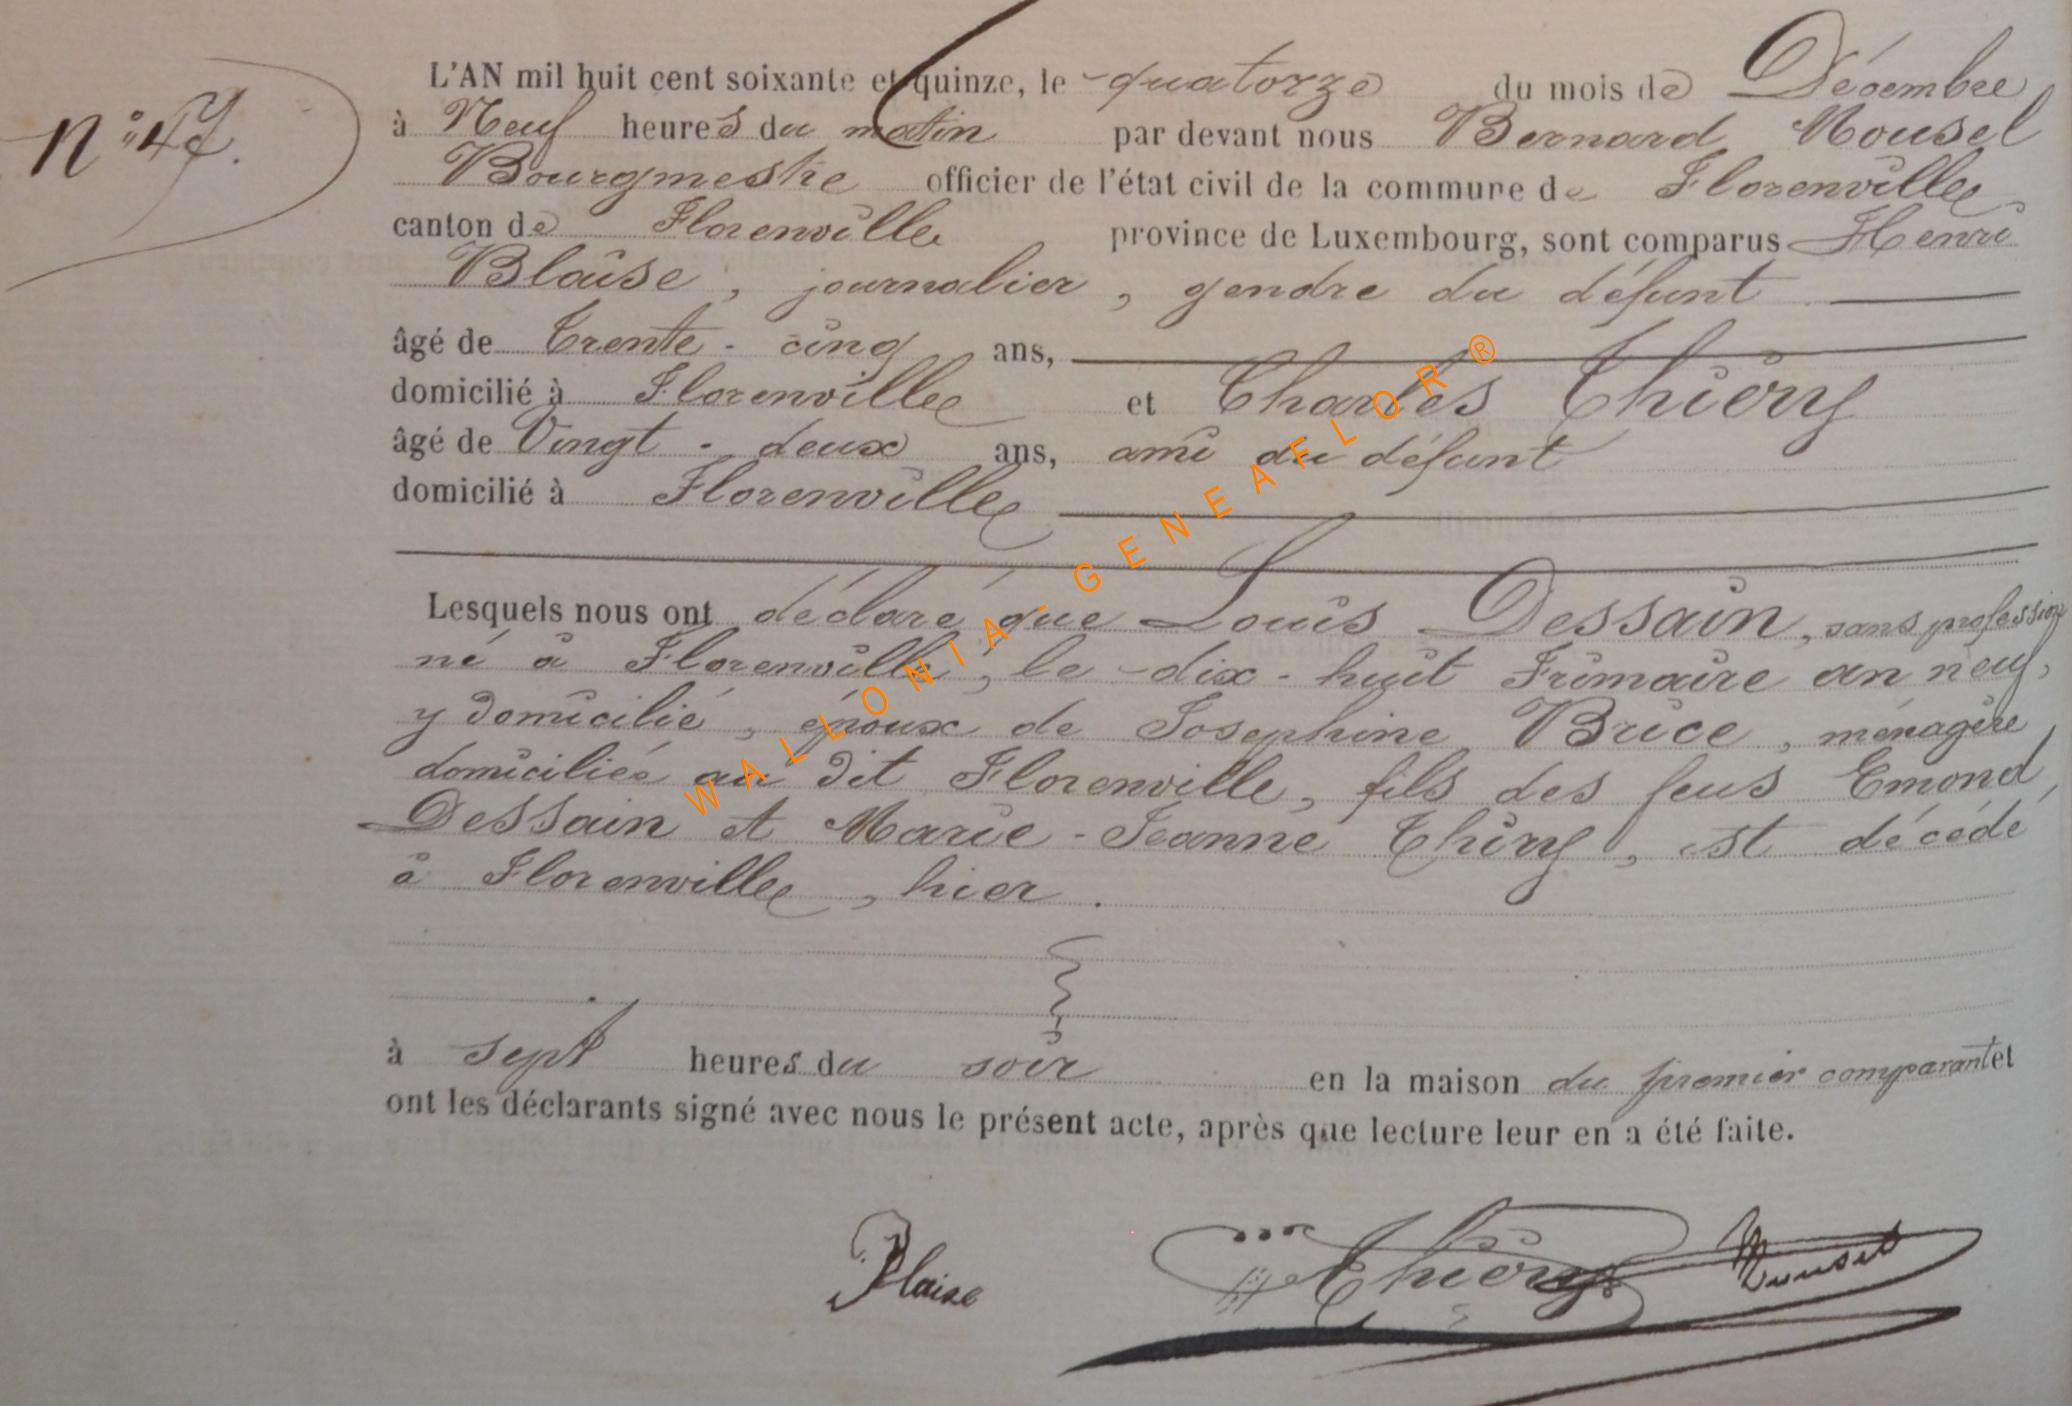 N° 47.
L'AN mil huit cent soixante et quinze, le quatorze du mois de Décembre
à Neuf heures du matin par devant nous Bernard Mousel
Bourgmestre officier de l'état civil de la commune de Florenville
canton de Florenville province de Luxembourg, sont comparus Henri
Blaise, journalier, gendre du défunt
âgé de Trente-cinq ans,
domicilié à Florenville et Charles Thiéry
âgé de Vingt-deux ans, ami du défunt
domicilié à Florenville
Lesquels nous ont déclaré que Louis Dessain, sans profession
né à Florenville, le dix-huit Frimaire an neuf,
y domicilié, époux de Josephine Brice, ménagère
domiciliée au dit Florenville, fils des feus Emond
Dessain et Marie-Jeanne Thiry, est décédé
à Florenville, hier.
à sept heures du soir en la maison du premier comparant et
ont les déclarants signé avec nous le présent acte, après que lecture leur en a été faite.
Blaise Thiéry Mousel
WALLONIA-GENEAFLOR®